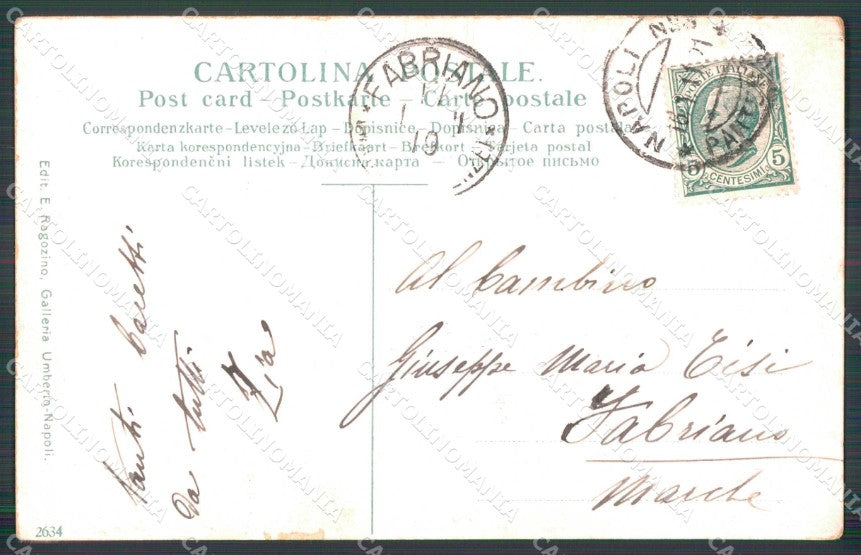 CARTOLINA POSTALE.
Post card – Postkarte – Carte postale
Correspondenzkarte – Levelező Lap – Dopisnice – Dopisnica – Carta postala
Karta korespondencyjna – Briefkaart – Brefkort – Tarjeta postal
Korespondenčni listek – Дописна карта – Открытое письмо
FABRIANO
NAPOLI
5 CENTESIMI 5
Edit. E. Ragozino, Galleria Umberto-Napoli.
tanti baretti
da tutti
Zia
Al Bambino
Giuseppe Maria Tisi
Fabriano
Marche
2634
CARTOLINOMANIA